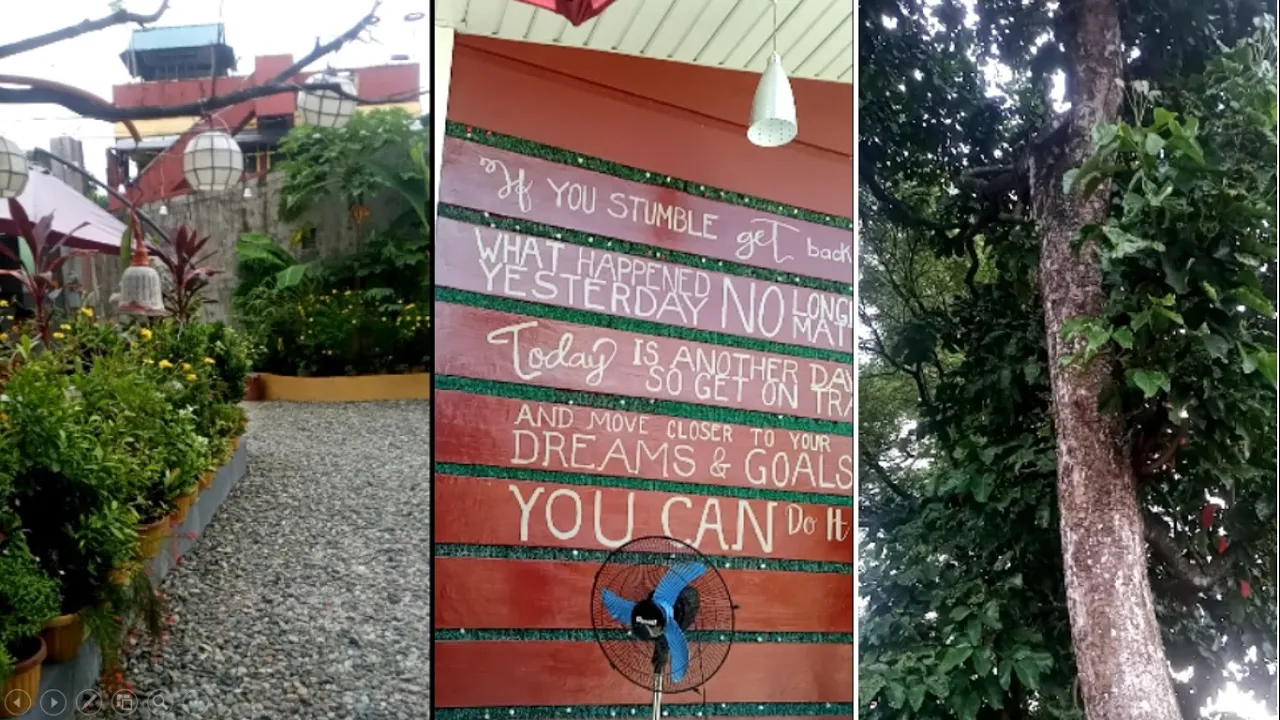 If YOU STUMBLE get back
WHAT HAPPENED
YESTERDAY NO
Today IS ANOTHER DAY
SO GET ON
AND MOVE CLOSER TO YOUR
DREAMS & GOALS
YOU CAN Do It